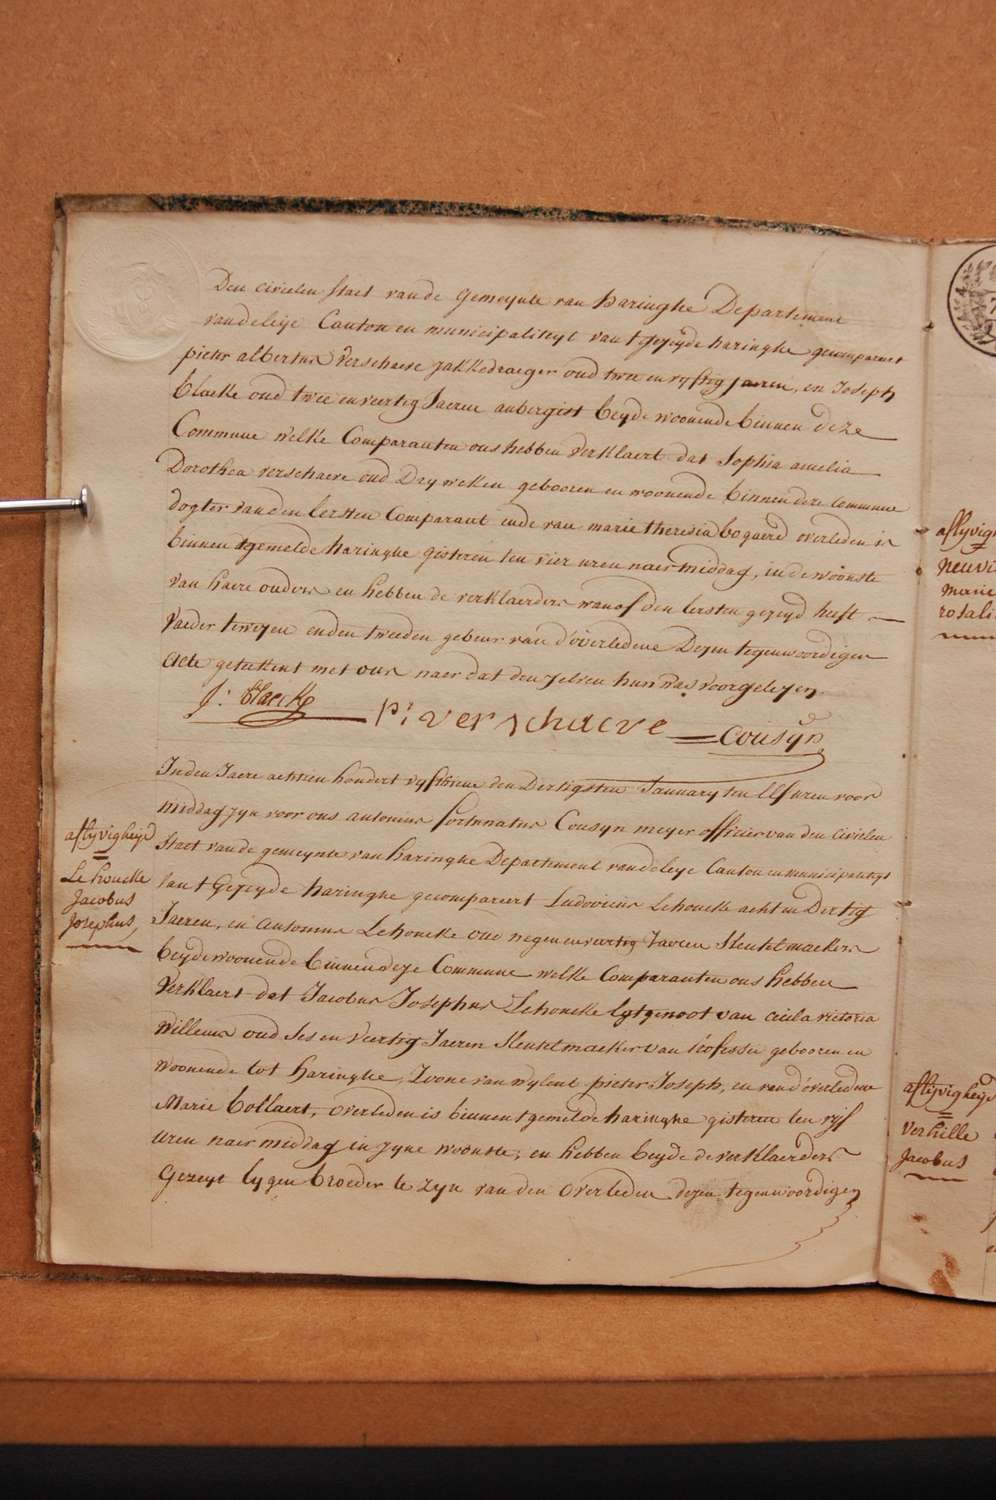 Den civielen staet van de gemeynte van haringhe Departement
van de leije Canton en municipaliteyt van t gezeyde haringhe gecompareert
pieter albertus verschaeve zakkedraeger oud twee en vyftig jaeren, en Joseph
blaeke oud twee en veertig Jaeren aubergist beyde woonende binnen deze
Commune welke Comparanten ons hebben verklaert dat Sophia amelia
Dorothea verschaeve oud Dry weken gebooren en woonende binnen deze Commune
dogter van den Eersten Comparant ende van marie theresia bogaerd overleden is
binnen tgemelde haringhe gisteren ten vier uren naer middag, in de woonste
van haere ouders en hebben de verklaerders wanof den Eersten gezeyd heeft
Vaeder te wezen ende den tweeden gebeur van d'overledene Dezen tegenwoordigen
Acte geteekent met ons naer dat den zelven hun was voorgelezen
J: blaeke
p: verschaeve
Cousyn
In den Jaere achtien hondert vyfthiene den Dertigsten January ten Elf uren voor
middag zyn voor ons antonius fortunatus Cousyn meyer officier van den Civielen
staet van de gemeynte van haringhe Departement van de leije Canton en municipaliteyt
van t Gezeyde haringhe gecompareert Ludovicus Lehoucke acht en Dertig
Jaeren, en Antonius Lehoucke oud negen en veertig Jaeren Sleutelmaekers
beyde woonende binnen deze Commune welke Comparanten ons hebben
Verklaert dat Jacobus Josephus Lehoucke Egtgenoot van Cicila victoria
Willems oud Ses en Veertig Jaeren Sleutelmaeker van professie gebooren en
woonende tot haringhe, Zoone van wylent pieter Joseph, en van d'overledene
Marie bollaert, overleden is binnen tgemelde haringhe gisteren ten vyf
uren naer middag in zyne woonste, en hebben beyde de verklaerders
Gezeyt Eygen broeder te zyn van den overleden dezen tegenwoordigen
aflyvigheyd
Lehoucke
Jacobus
Josephus
aflyvigh
neuvi
marie
rosali
aflyvigheyd
verhille
Jacobus